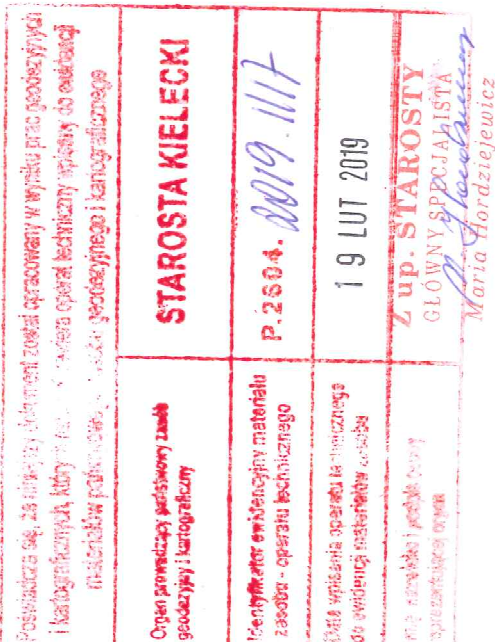 Poświadcza się, że niniejszy dokument został opracowany w wyniku prac geodezyjnych
i kartograficznych, których zawiera operat techniczny wpisany do ewidencji
materiałów geodezyjnego i kartograficznego
Organ prowadzący państwowy zasób
geodezyjny i kartograficzny
STAROSTA KIELECKI
Identyfikator ewidencyjny materiału
zasobu - operatu technicznego
P.2604. 2019.1117
Data wpisania operatu technicznego
do ewidencji materiałów zasobu
19 LUT 2019
i podpis osoby
organ
Z up. STAROSTY
GŁÓWNY SPECJALISTA
Maria Hordziejewicz